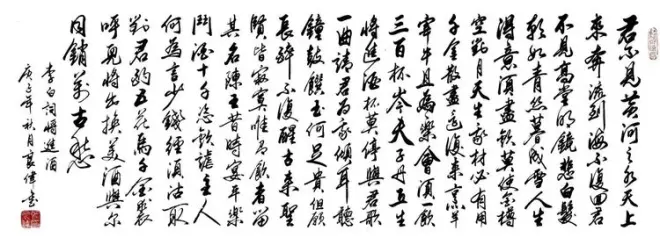 君不見黃河之水天上
來奔流到海不復回君
不見高堂明鏡悲白髮
朝如青絲暮成雪人生
得意須盡歡莫使金樽
空對月天生我材必有用
千金散盡還復來烹羊
宰牛且為樂會須一飲
三百杯岑夫子丹丘生
將進酒杯莫停與君歌
一曲請君為我傾耳聽
鐘鼓饌玉何足貴但願
長醉不復醒古來聖
賢皆寂寞惟有飲者留
其名陳王昔時宴平樂
鬥酒十千恣歡謔主人
何為言少錢徑須沽取
對君酌五花馬千金裘
呼兒將出換美酒與爾
同銷萬古愁
李白詞將進酒
庚子年秋月